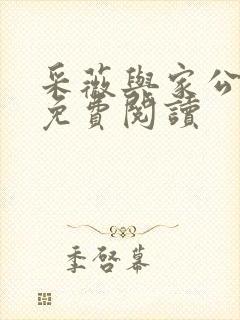 采薇與家公
免費閱讀
季啓幕